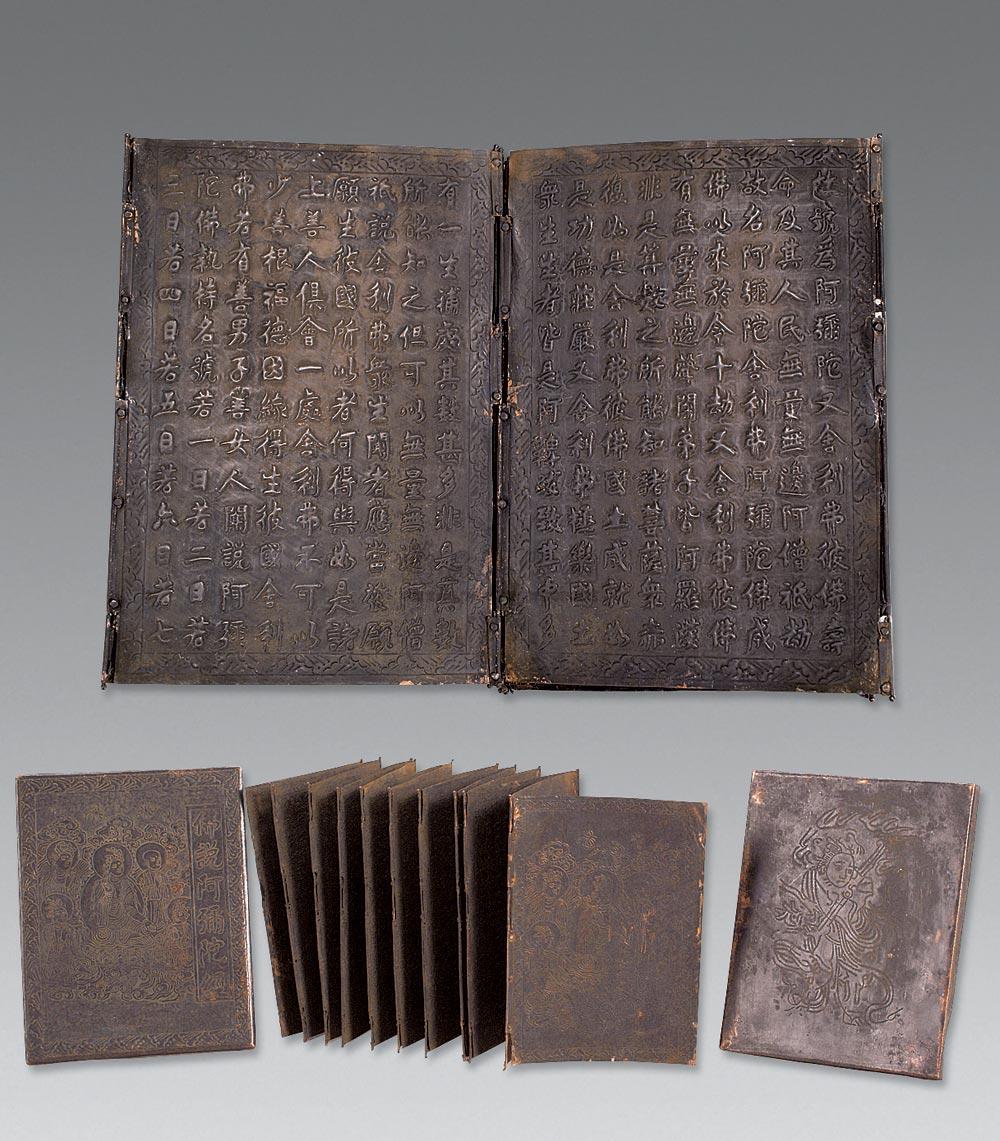 號為阿彌陀又舍利弗彼佛壽
命及其人民無量無邊阿僧祇劫
故名阿彌陀舍利弗阿彌陀佛成
佛以來於今十劫又舍利弗彼佛
有無量無邊聲聞弟子皆阿羅漢
非是算數之所能知諸菩薩眾亦
復如是舍利弗彼佛國土成就如
是功德莊嚴又舍利弗極樂國土
眾生生者皆是阿鞞跋致其中多
有一生補處其數甚多非是算數
所能知之但可以無量無邊阿僧
祇說舍利弗眾生聞者應當發願
願生彼國所以者何得與如是諸
上善人俱會一處舍利弗不可以
少善根福德因緣得生彼國舍利
弗若有善男子善女人聞說阿彌
陀佛執持名號若一日若二日若
三日若四日若五日若六日若七
佛說阿彌陀經